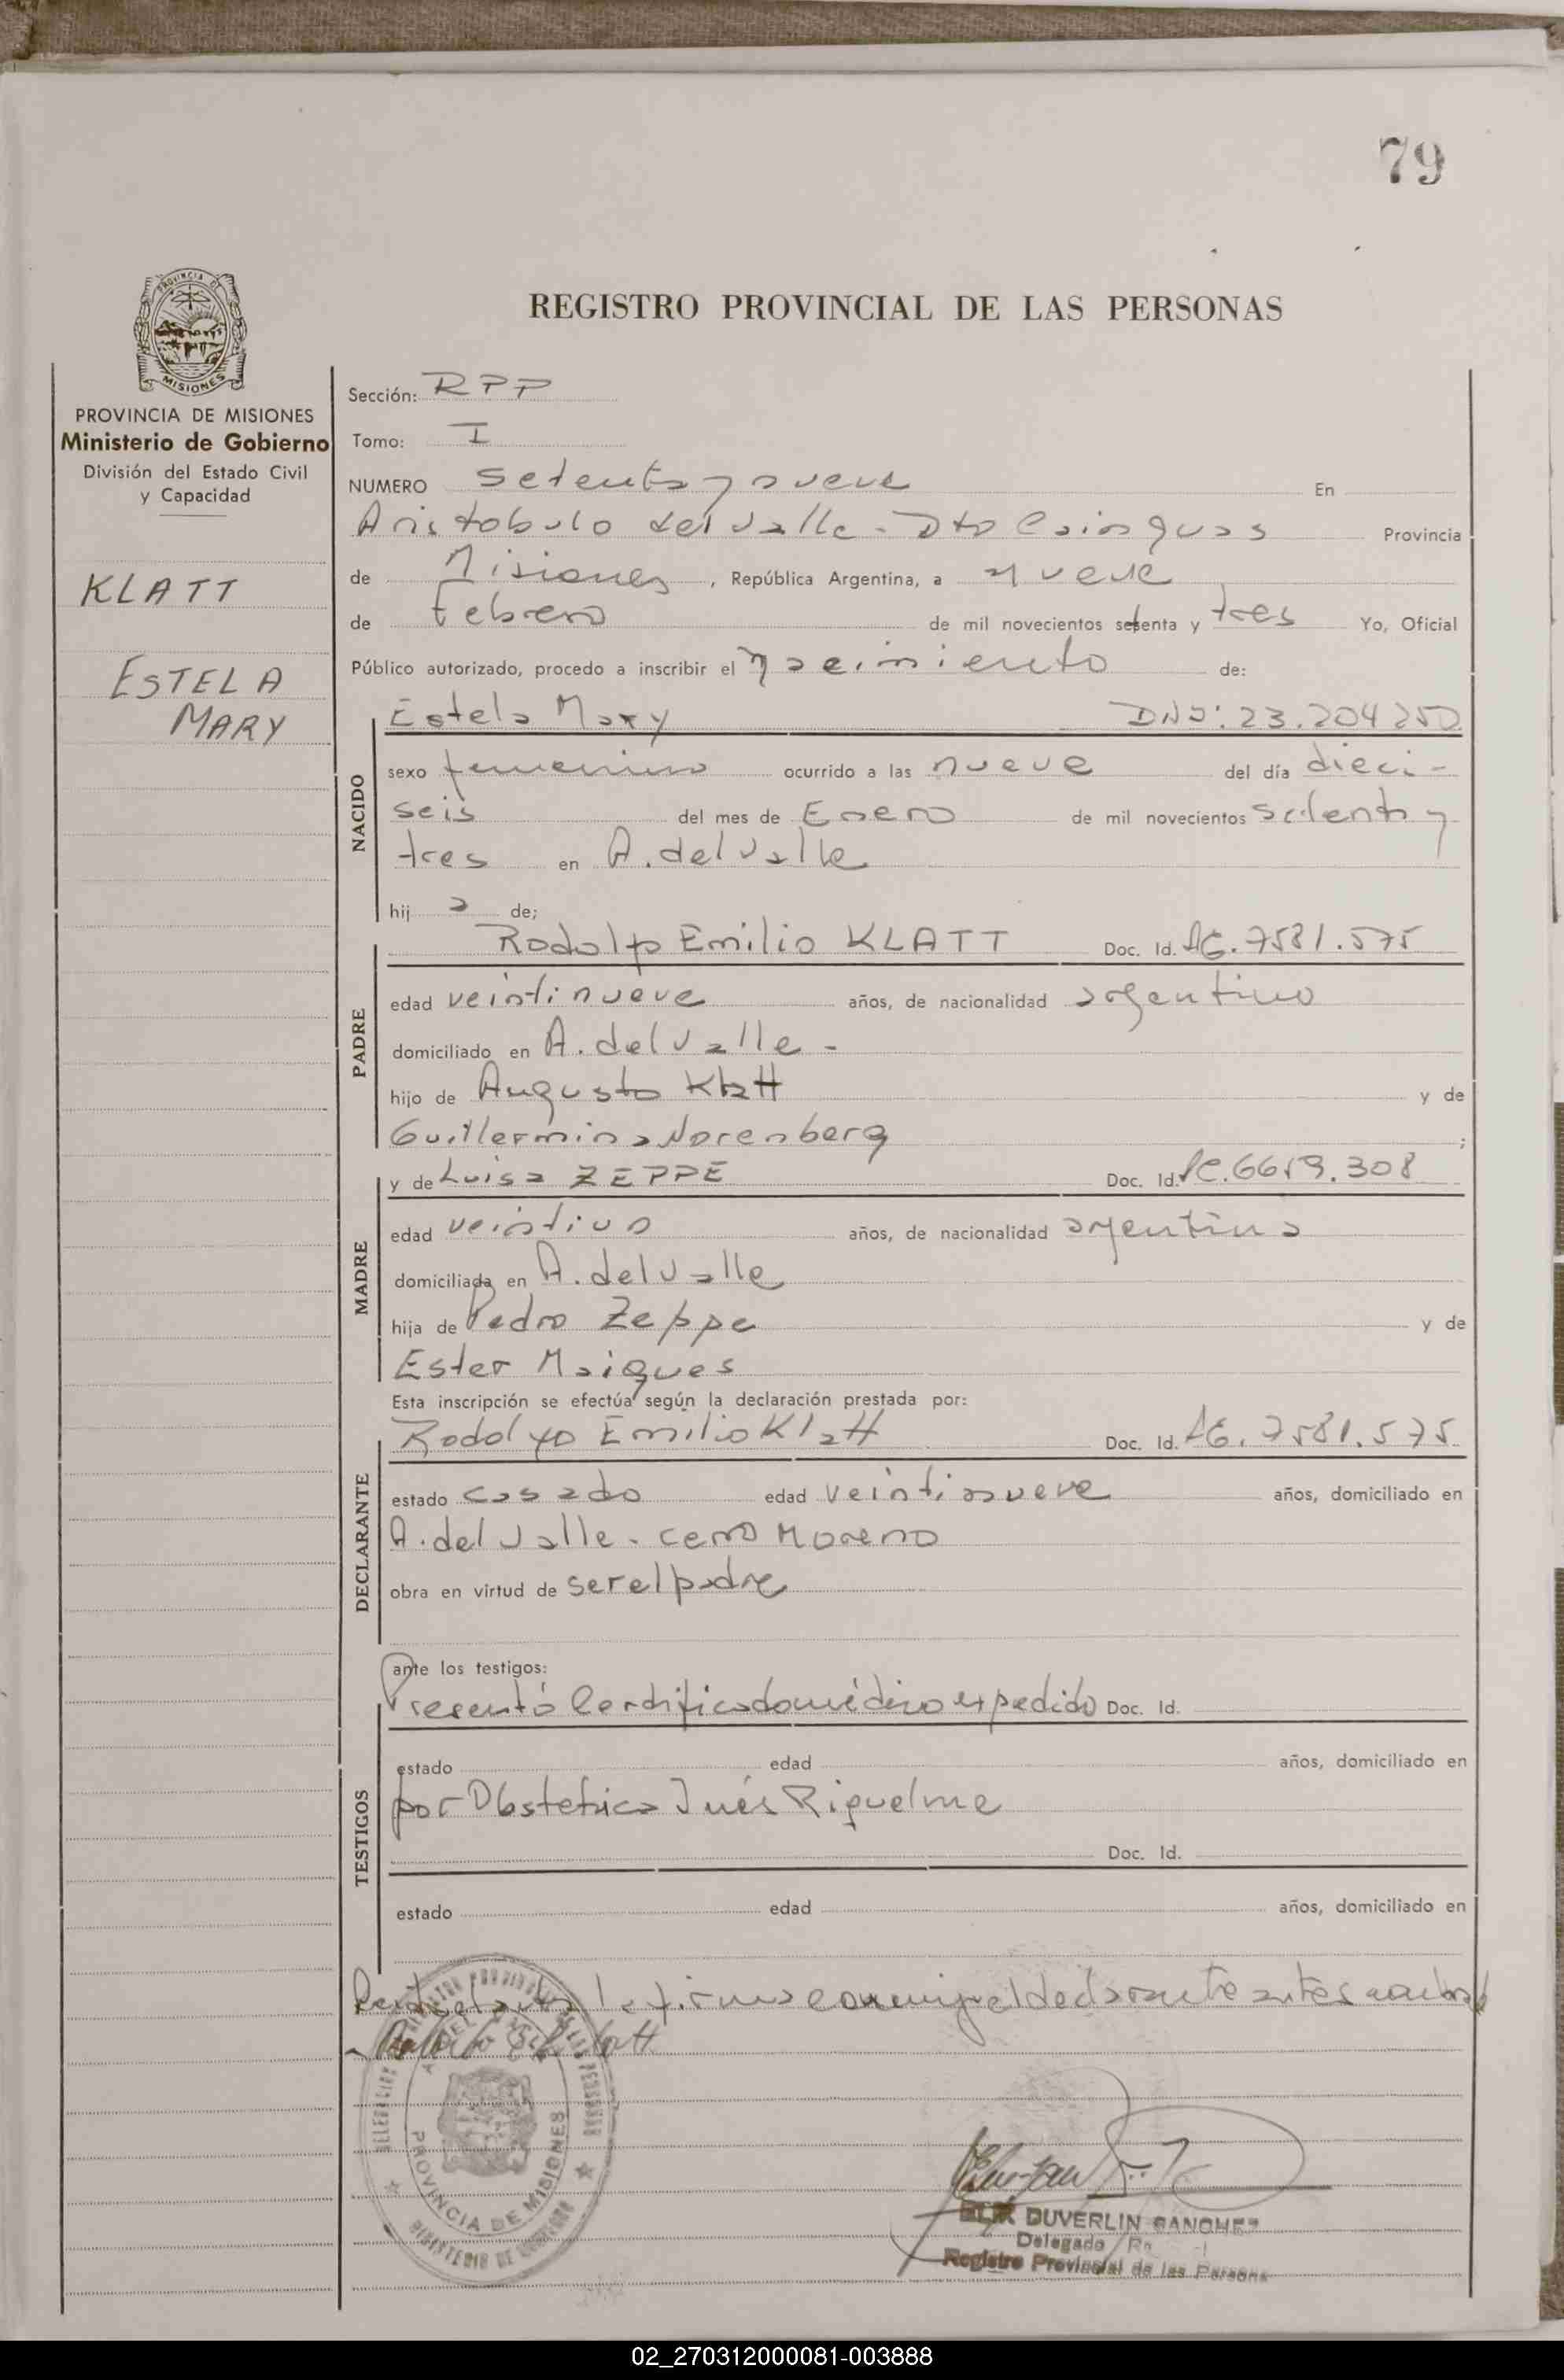 79
REGISTRO PROVINCIAL DE LAS PERSONAS
PROVINCIA DE MISIONES
PROVINCIA DE MISIONES
Ministerio de Gobierno
División del Estado Civil
y Capacidad
KLATT
ESTELA
MARY
Sección: RPP
Tomo: I
NUMERO setenta y nueve En
Aristobulo del Valle - Dto Cainguas Provincia
de Misiones, República Argentina, a nueve
de Febrero de mil novecientos setenta y tres Yo, Oficial
Público autorizado, procedo a inscribir el nacimiento de:
NACIDO
Estela Mary DNI: 23.204250
sexo femenino ocurrido a las nueve del día dieci-
seis del mes de Enero de mil novecientos setenta y
tres en A. del Valle
hij a de;
PADRE
Rodolfo Emilio KLATT Doc. Id. LE. 7581.575
edad veintinueve años, de nacionalidad argentino
domiciliado en A. del Valle -
hijo de Augusto Klatt y de
Guillermina Norenberg ;
MADRE
y de Luisa ZEPPE Doc. Id. LC. 6619.308
edad veintiun años, de nacionalidad argentina
domiciliada en A. del Valle
hija de Pedro Zeppe y de
Ester Maigues
Esta inscripción se efectúa según la declaración prestada por:
DECLARANTE
Rodolfo Emilio Klatt Doc. Id. LE. 7581.575
estado casado edad veintinueve años, domiciliado en
A. del Valle - cerro Moreno
obra en virtud de ser el padre
ante los testigos:
TESTIGOS
Presentó Certificado médico expedido Doc. Id.
estado edad años, domiciliado en
por Obstetrica Inés Riquelme
Doc. Id.
estado edad años, domiciliado en
la firma conmigo el declarante antes nombrado
PROVINCIA DE MISIONES
DUVERLIN SANCHEZ
Delegado
Registro Provincial de las Personas
02_270312000081-003888